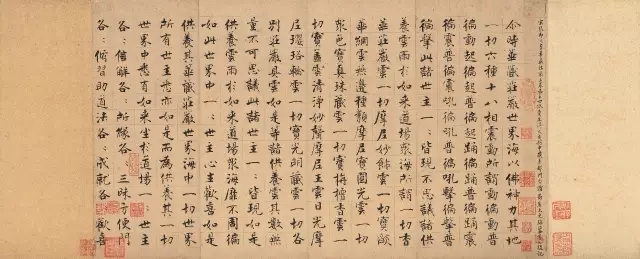 尒時華藏莊嚴世界海以佛神力其地
一切六種十八相震動所謂動徧動普
徧動起徧起普徧起踊徧踊普徧踊震
徧震普徧震吼徧吼普徧吼擊徧擊普
徧擊此諸世主一一皆現不思議諸供
養雲雨於如来道場衆海所謂一切香
華莊嚴雲一切摩尼妙飾雲一切寶燄
華網雲無邊種類摩尼寶圓光雲一切
衆色寶真珠藏雲一切寶栴檀香雲一
切寶盖雲清淨妙聲摩尼王雲日光摩
尼瓔珞輪雲一切寶光明藏雲一切各
別莊嚴具雲如是等諸供養雲其數無
量不可思議此諸世主一一皆現如是
供養雲雨於如来道場衆海靡不周徧
如此世界中一一世主心生歡喜如是
供養其華藏莊嚴世界海中一切世界
所有世主悉亦如是而為供養其一切
世界中悉有如来坐於道場一一世主
各各信解各各所緣各各三昧方便門
各各修習助道法各各成就各各歡喜